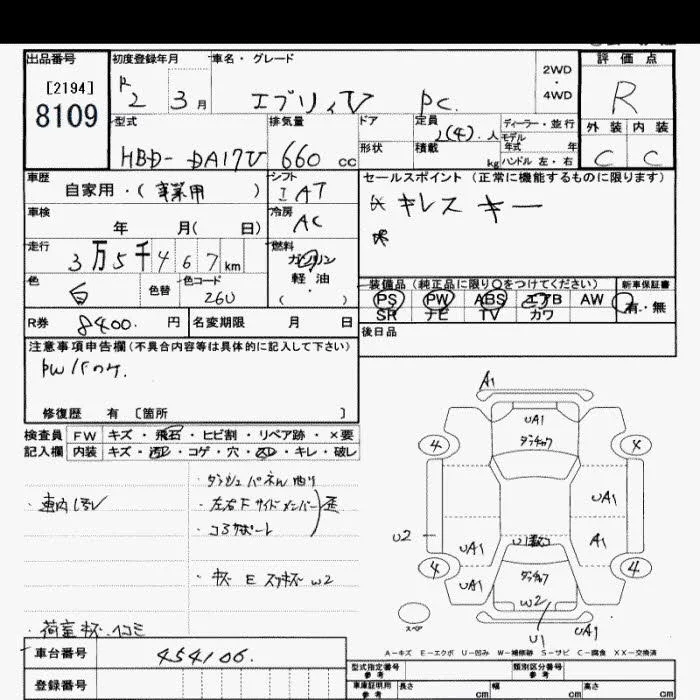 出品番号
[2194]
8109
初度登録年月
R2 3月
車名・グレード
エブリィV PC
2WD
・
4WD
評価点
R
外装 内装
C C
型式
HBD-DA17V
排気量
660 cc
ドア
形状
定員
2(4)人
積載
kg
ディーラー・並行
モデル
年式 年
ハンドル 左・右
車歴
自家用・(事業用)
シフト
IAT
車検
年 月( 日)
冷房
AC
走行
3万5千467km
燃料
ガソリン
軽油
( ・ )
色
白
色替
色コード
26U
R券
8400. 円
名変期限 月 日
セールスポイント (正常に機能するものに限ります)
キレスキー
装備品 (純正品に限り○をつけてください)
PS PW ABS エアB AW
SR ナビ TV カワ
新車保証書
有・無
後日品
注意事項申告欄(不具合内容等は具体的に記入して下さい)
修復歴 有 〔箇所 〕
検査員
記入欄
FW キズ・飛石・ヒビ割・リペア跡・×要
内装 キズ・汚レ・コゲ・穴・スレ・キレ・破レ
・車内汚レ
・ダッシュパネル曲り
・左右Fサイドメンバー
・コアサポート
歪
・荷室キズ・凹ミ
A1
UA1
4
×
UA1
U2
UA1
A1
4
UA1
4
W2
U1
UA1
スペア
A-キズ E-エクボ U-凹み W-補修跡 S-サビ C-腐食 XX-交換済
車台番号
454106.
登録番号
型式指定番号
参考
類別区分番号
参考
車庫証明用
参考
長さ cm
幅 cm
高さ cm